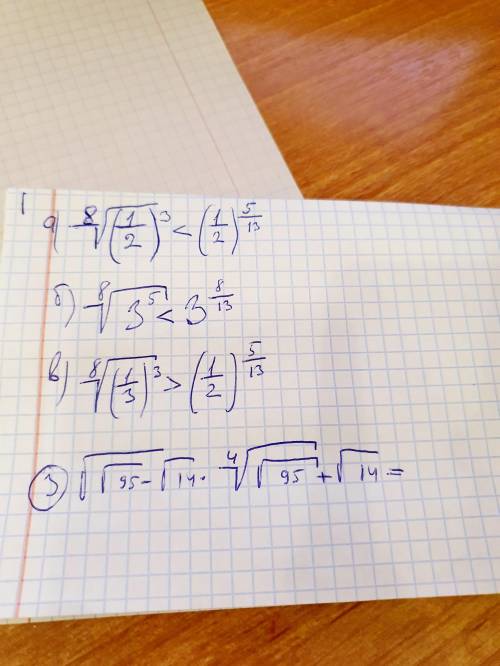 1
а) \sqrt[8]{(\frac{1}{2})^3} < (\frac{1}{2})^{\frac{5}{13}}
б) \sqrt[8]{3^5} < 3^{\frac{8}{13}}
в) \sqrt[8]{(\frac{1}{3})^3} > (\frac{1}{2})^{\frac{5}{13}}
3) \sqrt{\sqrt{95} - \sqrt{14}} \cdot \sqrt[4]{\sqrt{95}} + \sqrt{14} =